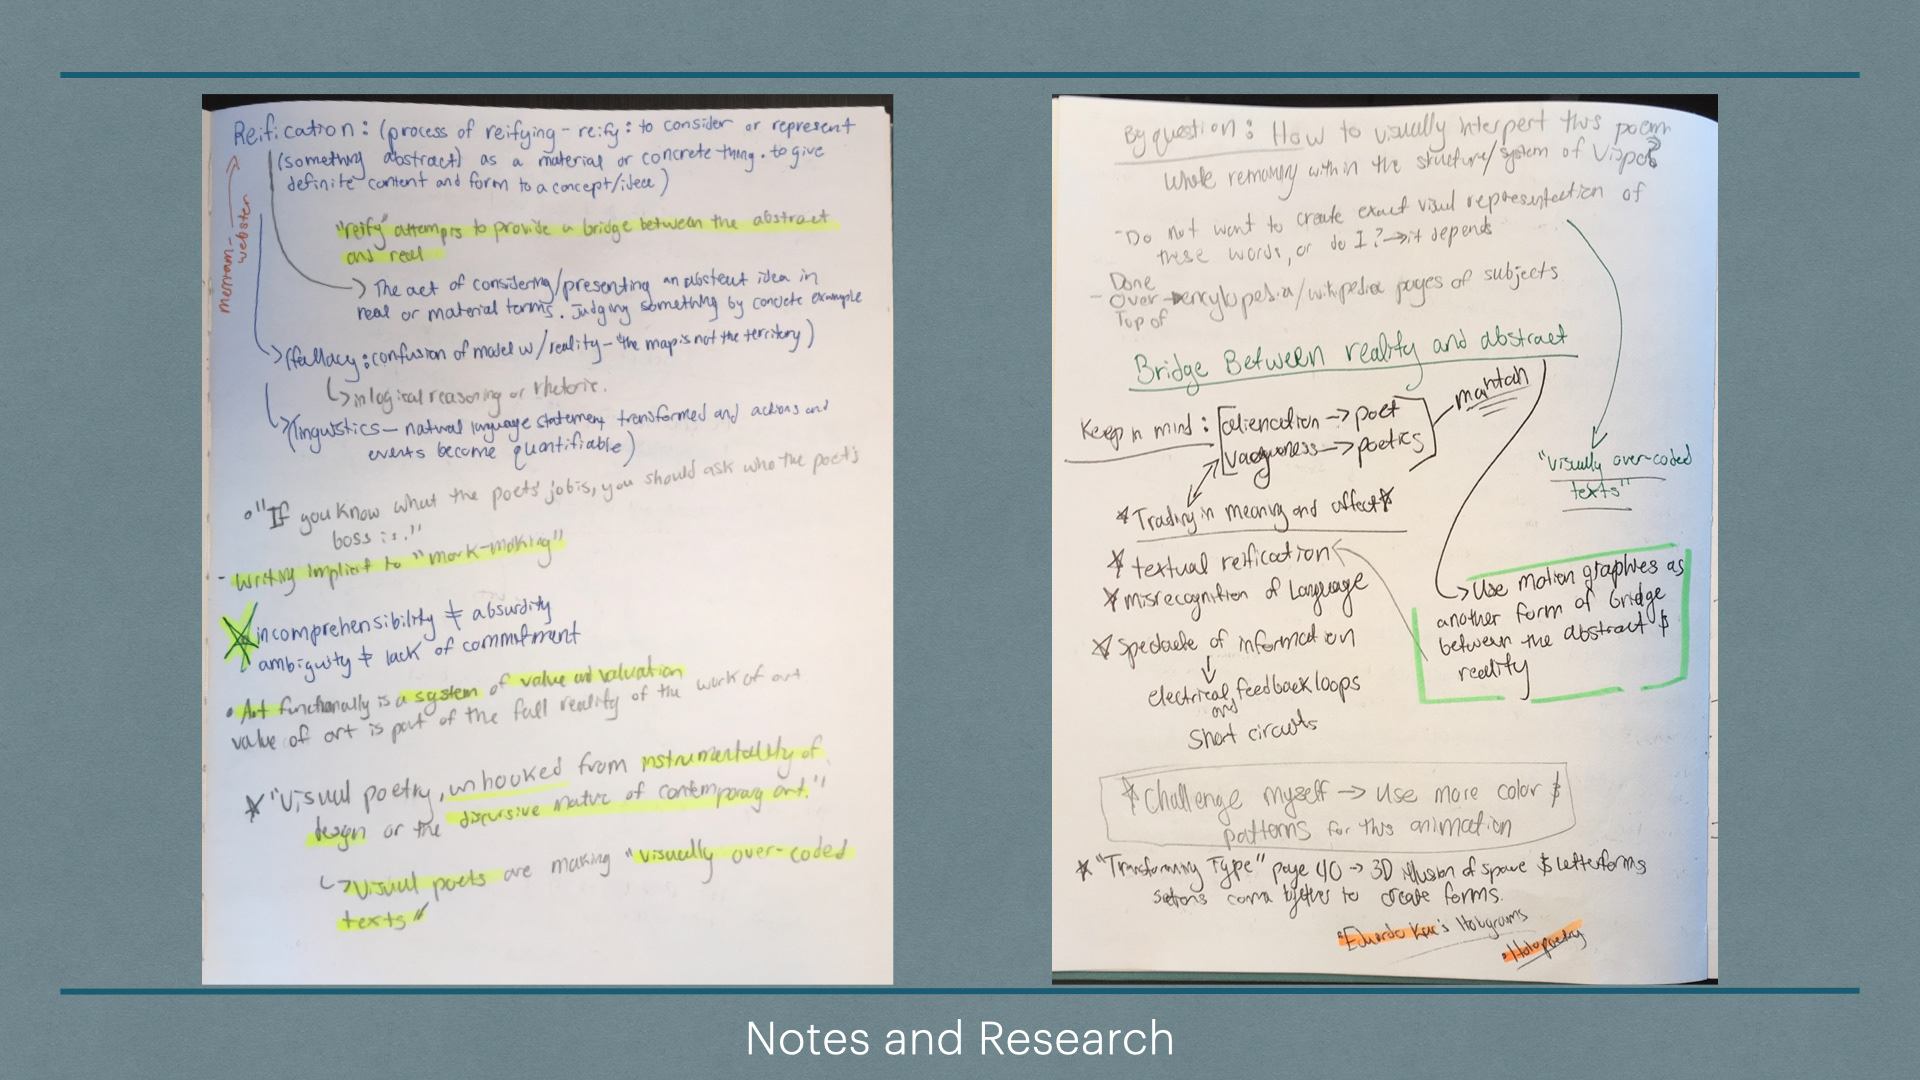 Reification: (process of reifying - reify: to consider or represent
(something abstract) as a material or concrete thing. to give
definite content and form to a concept/idea)
merriam-
webster
"reify" attempts to provide a bridge between the abstract
and real
The act of considering/presenting an abstract idea in
real or material terms. Judging something by concrete example
(fallacy: confusion of model w/ reality - "the map is not the territory)
in logical reasoning or rhetoric.
(linguistics - natural language statement transformed and actions and
events become quantifiable)
"If you know what the poets' job is, you should ask who the poet's
boss is."
- Writing implicit to "mark-making"
incomprehensibility ≠ absurdity
ambiguity ≠ lack of commitment
• Art functionally is a system of value and valuation
value of art is part of the full reality of the work of art
"Visual poetry, unhooked from instrumentality of
design or the discursive matrix of contemporary art."
Visual poets are making "visually over-coded
texts"
Big question: How to visually interpert this poem
while remaining within the structure/system of Vispo?
- Do not want to create exact visual representation of
these words, or do I? → it depends
Done
- Over → encylopedia/wikipedia pages of subjects
Top of
Bridge Between reality and abstract
Keep in mind: [alienation → poet
vagueness → poetics]
"visually over-coded
texts"
* Trading in meaning and affect *
* textual reification
* misrecognition of Language
* Spectacle of information
electrical feedback loops
and
Short circuits
Use motion graphics as
another form of bridge
between the abstract &
reality
* Challenge myself → use more color &
patterns for this animation
* "Transforming Type" page 40 → 3D illusion of space & letterforms
come together to create forms.
• Eduardo Kac's Holograms
• Holopoetry
Notes and Research